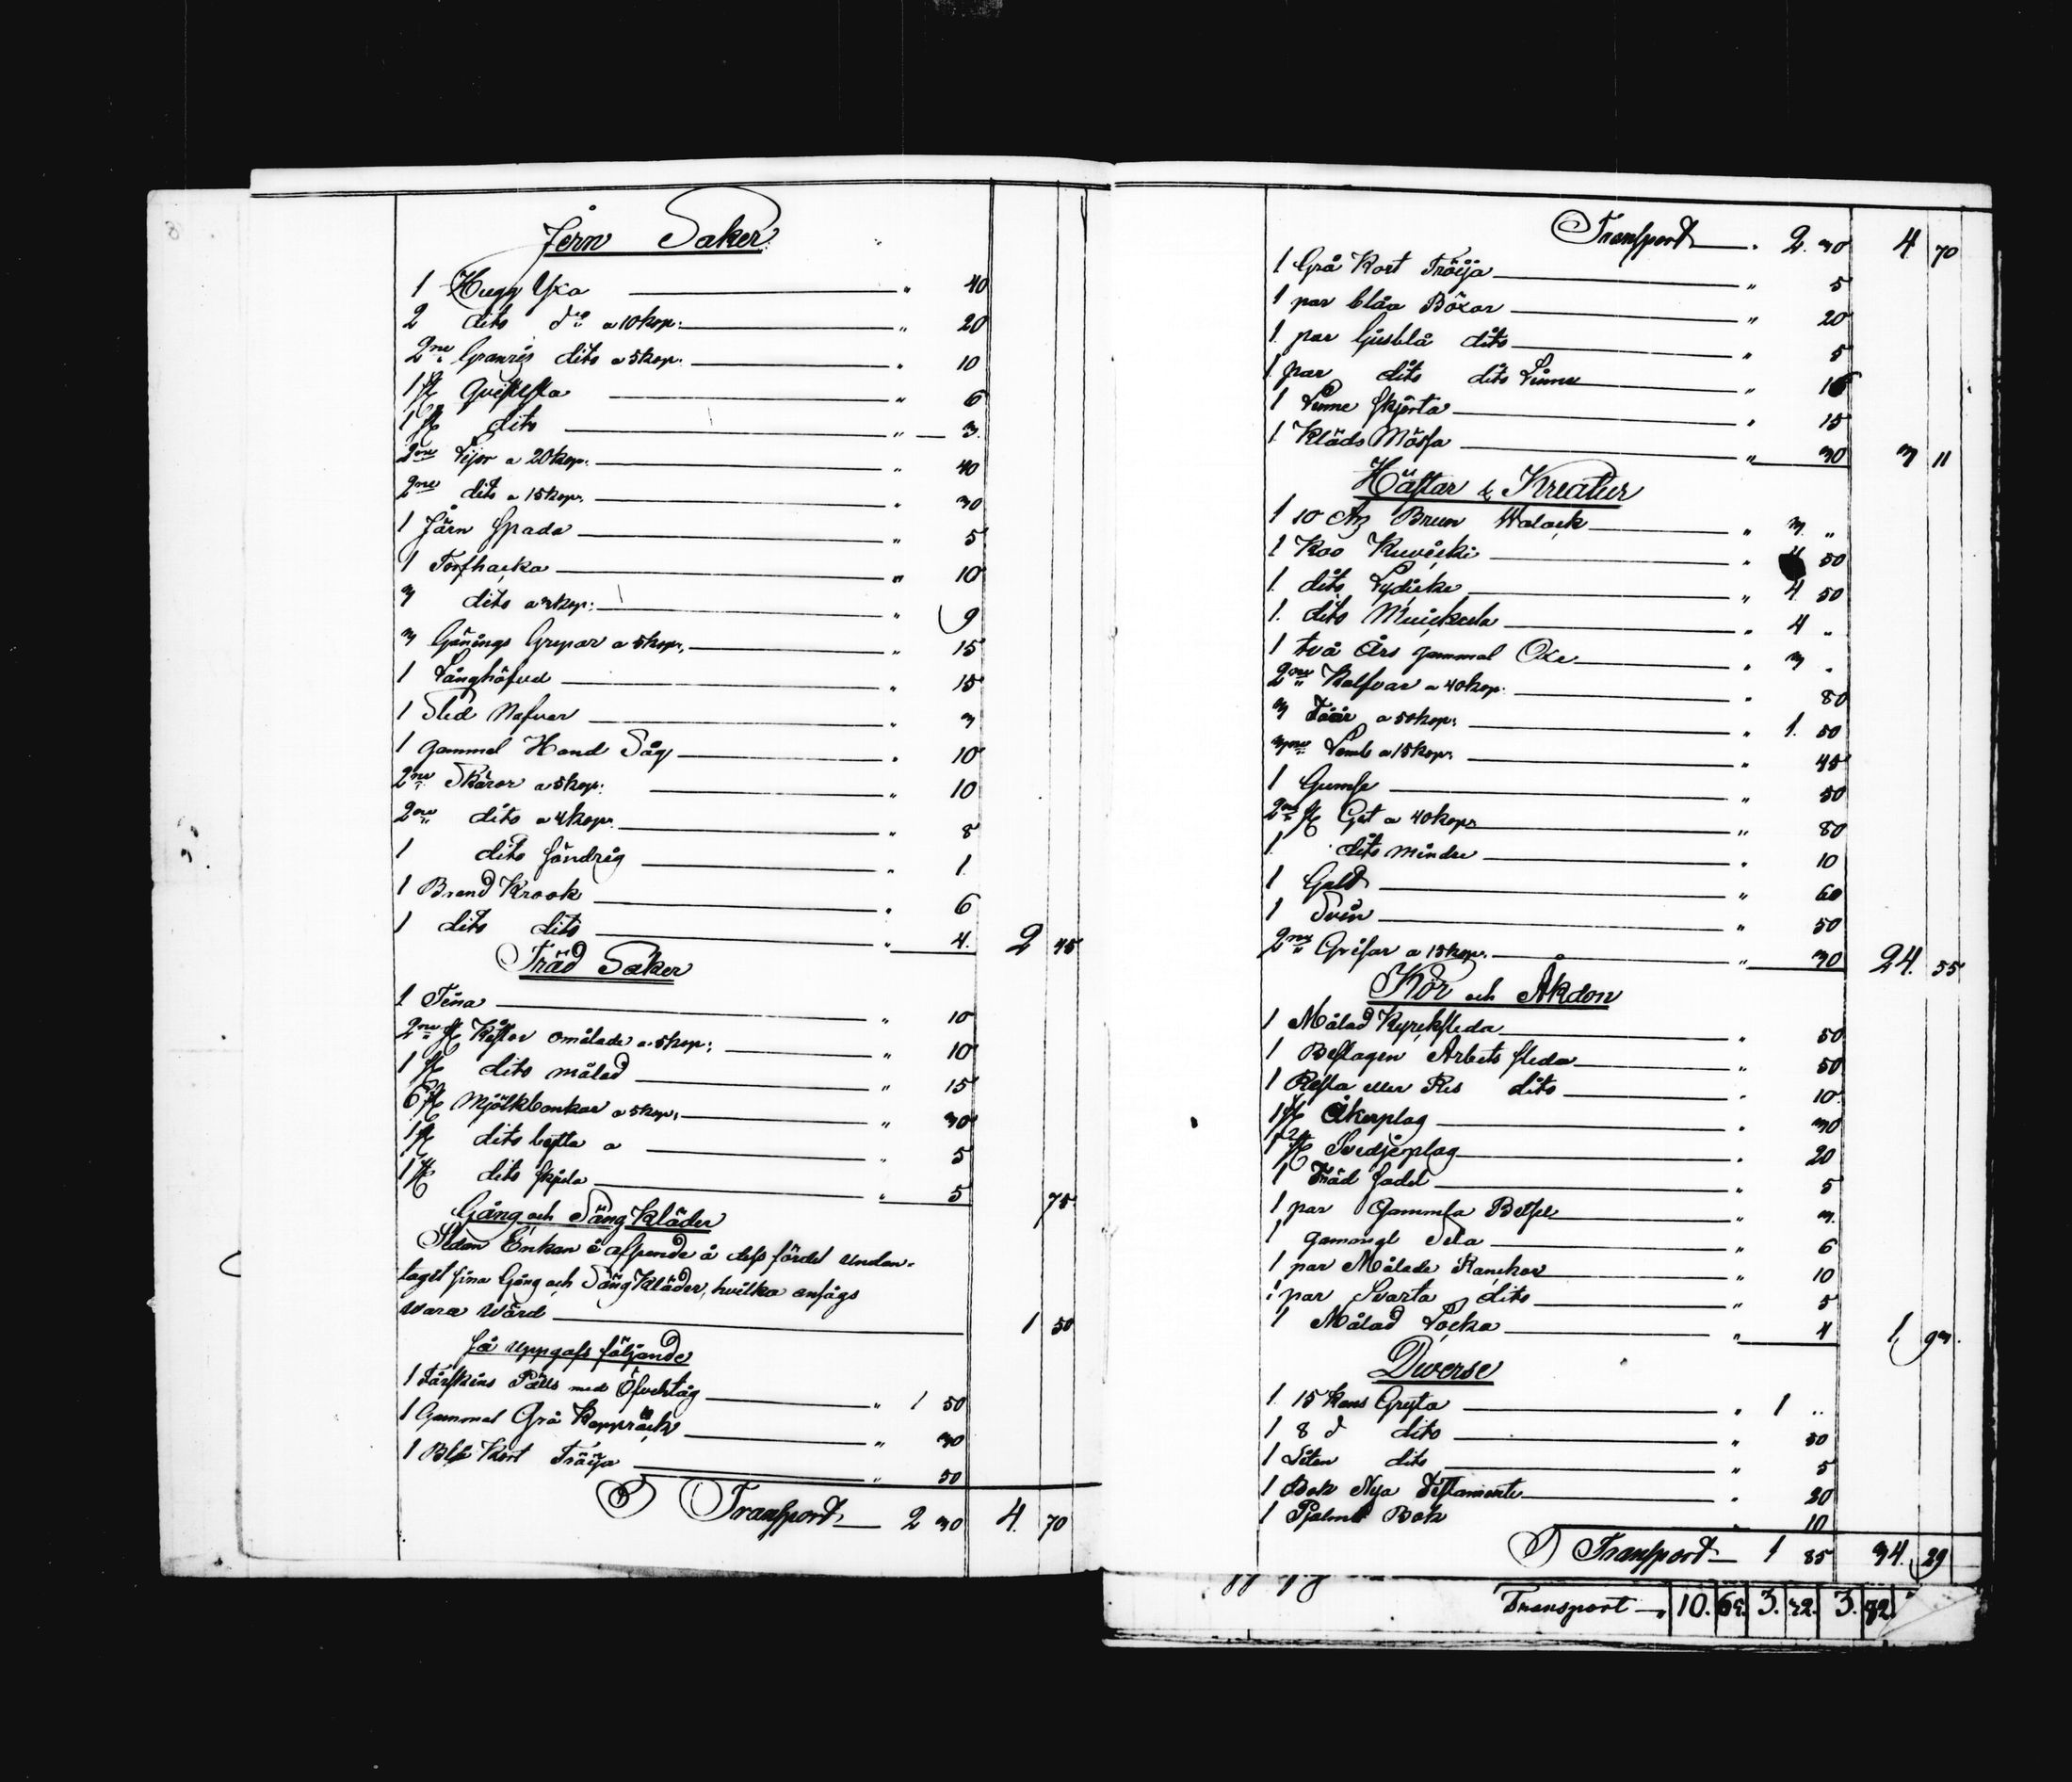 Jern Saker
1 Hugg Yxa " 40
2 dito do a 10 kop: " 20
2ne Granris dito a 5 kop: " 10
1 st " 6
1 st dito " 3.
2ne Lijor a 20 kop: " 40
2ne dito a 15 kop: " 30
1 Järn Spada " 5
1 Torfhacka " 10
3 dito a 3 kop: " 9
3 Gänings Grepar a 5 kop: " 15
1 Långhöfvel " 15
1 Sled Nafvar " 3
1 gammal Hand Såg " 10
2ne Skäror a 5 kop: " 10
2ne dito a 4 kop: " 8
1 dito söndrig " 1
1 Brand Krook " 6
1 dito dito " 4. 2 45
Träd Saker
1 Tina " 10
2ne st Kistor omålade a 5 kop: " 10
1 st dito målad " 15
6 st Mjölkbonkar a 5 kop: " 30
1 st dito bytta a " 5
1 st dito skjula " 5 75
Gång och Säng Kläder
Sedan Enkan å dess fördel undan-
tagit sina Gång och Säng Kläder, hvilka ansågs
vara wärd 1 50
Så uppgafs följande
1 Fårskins Pälls med Öfvertåg " 1 50
1 Gammal Grå Kapprock " 30
1 Blå Kort Tröija " 50
Transport 2 30 4. 70
Transport " 2. 30 4 70
1 Grå Kort Tröija " 5
1 par blåa Böxor " 20
1 par ljusblå dito " 5
1 par dito dito Linne " 16
1 Linne Skjorta " 15
1 Kläds Mössa " 30 3 11
Hästar & Kreatur
1 10 Brun Walack " 3 "
1 Koo " 4 50
1 dito " 4 50
1 dito " 4 "
1 två Års gammal Oxe " 3 "
2ne Kalfvar a 40 kop: " 80
3 Fåår a 50 kop: " 1. 50
3ne Lamb a 15 kop: " 45
1 Gumse " 50
2ne st Get a 40 kop: " 80
1 dito mindre " 10
1 Galt " 60
1 Svin " 50
2ne Grisar a 15 kop: " 30 24. 55
Kör och Åkdon
1 Målad Kyrcksleda " 50
1 Beslagen Arbets sleda " 50
1 Resla eller Ris dito " 10
1 st Åkerplog " 30
1 st Svedjeplog " 20
1 Träd Sadel " 5
1 par Gammla Betsel " 3.
1 gammal Sela " 6
1 par Målade Ranckor " 10
1 par Svarta dito " 5
1 Målad Locka " 4 1. 93.
Diverse
1 15 Kans Gryta " 1 "
1 8 d dito " 50
1 Liten dito " 5
1 Bok Nya Testamente " 20
1 Psalm Bok " 10
Transport 1 85 34. 29
Transport 10. 3. 3.